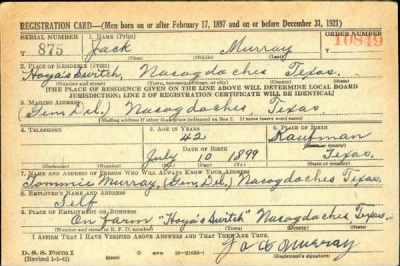 REGISTRATION CARD—(Men born on or after February 17, 1897 and on or before December 31, 1921)
SERIAL NUMBER
1. NAME (Print)
ORDER NUMBER
V 875
Jack Murray
10849
(First) (Middle) (Last)
2. PLACE OF RESIDENCE (Print)
Hoya's Switch, Nacogdoches Texas.
(Number and street) (Town, township, village, or city) (County) (State)
[THE PLACE OF RESIDENCE GIVEN ON THE LINE ABOVE WILL DETERMINE LOCAL BOARD
JURISDICTION; LINE 2 OF REGISTRATION CERTIFICATE WILL BE IDENTICAL]
3. MAILING ADDRESS
(Gen. Del.) Nacogdoches Texas
[Mailing address if other than place indicated on line 2. If same insert word same]
4. TELEPHONE
5. AGE IN YEARS
6. PLACE OF BIRTH
42
Kaufman
DATE OF BIRTH
(Town or county)
July 10 1899
Texas.
(Exchange) (Number)
(Mo.) (Day) (Yr.)
(State or country)
7. NAME AND ADDRESS OF PERSON WHO WILL ALWAYS KNOW YOUR ADDRESS
Tommie Murray, (Gen. Del.) Nacogdoches Texas
8. EMPLOYER'S NAME AND ADDRESS
Self
9. PLACE OF EMPLOYMENT OR BUSINESS
On Farm "Hoya's Switch" Nacogdoches Texas.
(Number and street or R. F. D. number) (Town) (County) (State)
I AFFIRM THAT I HAVE VERIFIED ABOVE ANSWERS AND THAT THEY ARE TRUE.
D. S. S. Form 1
(Revised 1-1-42)
Murray